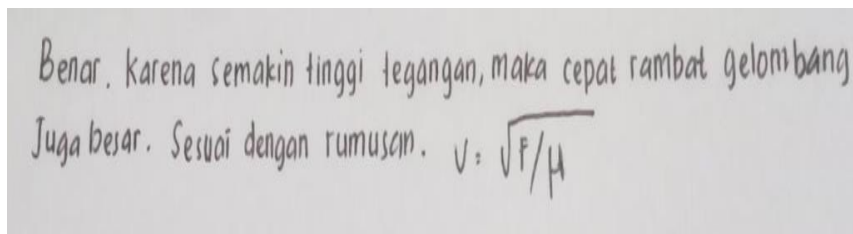 Benar. Karena semakin tinggi tegangan, maka cepat rambat gelombang
Juga besar. Sesuai dengan rumusan. V = √F/μ